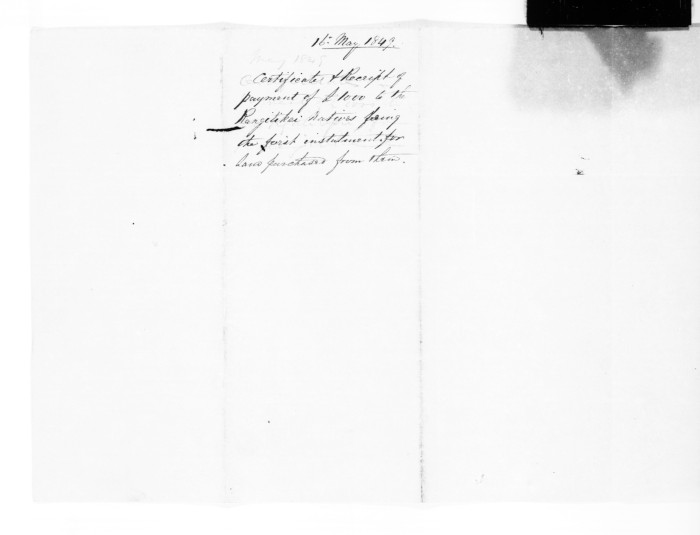 16th May 1849.
May 1849
Certificate & Receipt of
payment of £1000 to the
Rangitikei Natives being
the first instalment for
land purchased from them.